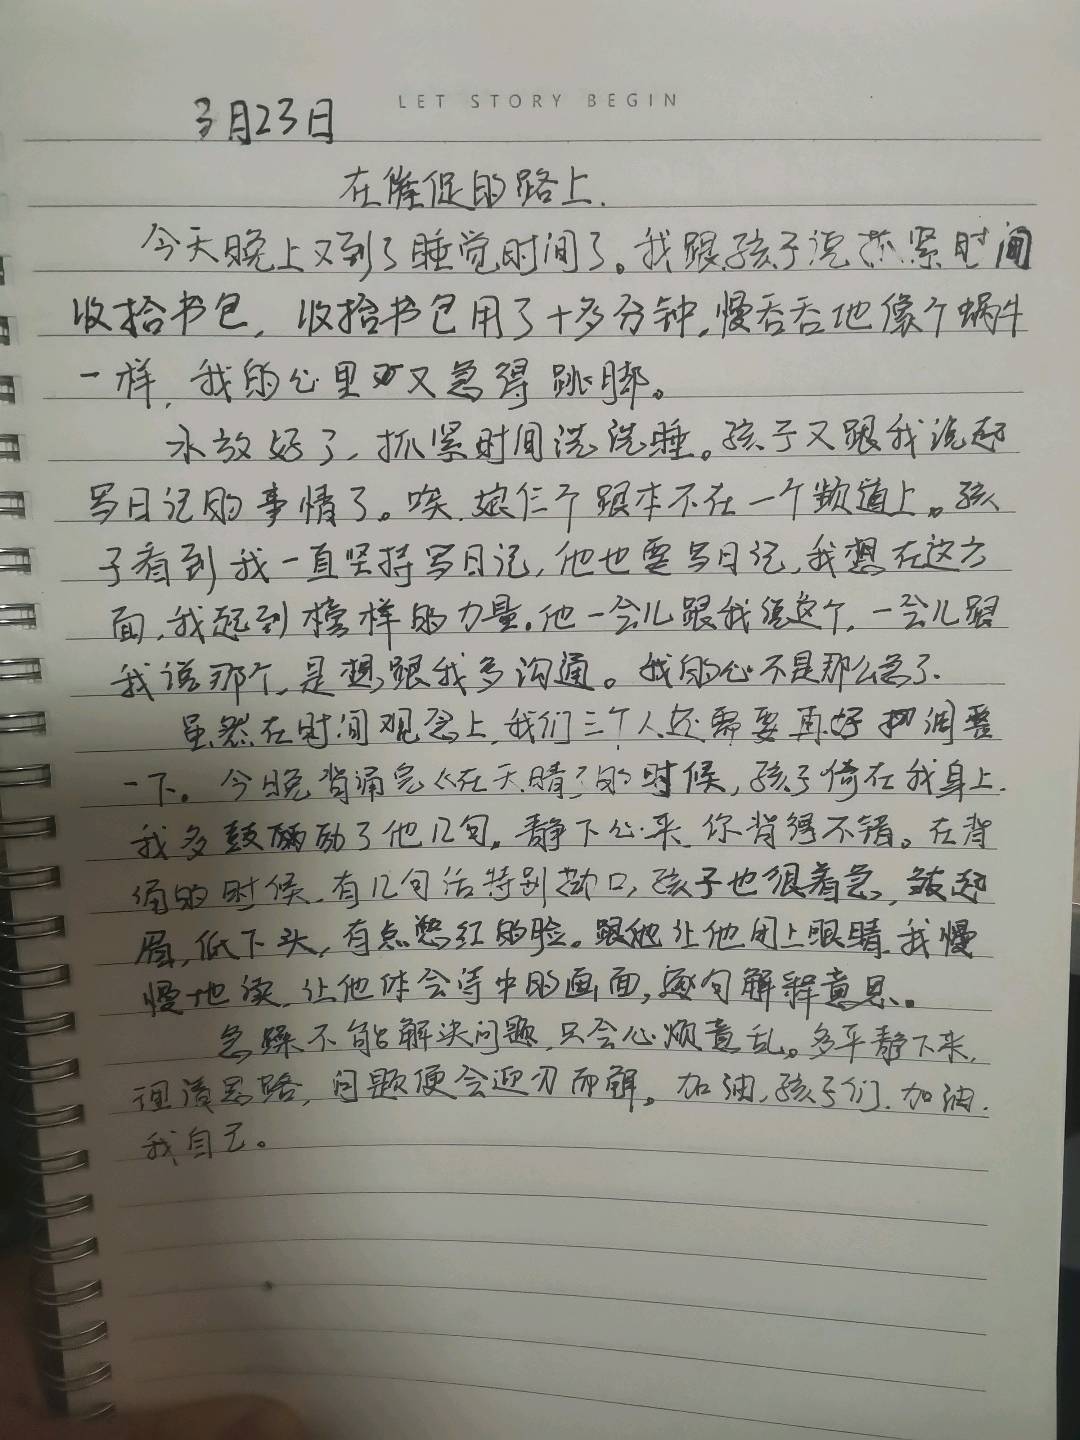 LET STORY BEGIN
3月23日
在催促的路上.
今天晚上又到了睡觉时间了。我跟孩子说抓紧时间
收拾书包,收拾书包用了十多分钟,慢吞吞地像个蜗牛
一样,我的心里又急得跳脚。
水放好了,抓紧时间洗洗睡。孩子又跟我说起
写日记的事情了。唉,娘仨个跟本不在一个频道上。孩
子看到我一直坚持写日记,他也要写日记,我想在这方
面,我起到榜样的力量。他一会儿跟我说这个,一会儿跟
我说那个,是想跟我多沟通。我的心不是那么急了.
虽然在时间观念上,我们三个人还需要再好好调整
一下。今晚背诵完《在天晴了的时候,孩子倚在我身上.
我多鼓励了他几句,静下心来,你背得不错。在背
诵的时候,有几句话特别拗口,孩子也很着急,皱起
眉,低下头,有点憋红的脸。跟他让他闭上眼睛,我慢
慢地读,让他体会诗中的画面,逐句解释意思。
急躁不能解决问题,只会心烦意乱。多平静下来,
理清思路,问题便会迎刃而解。加油,孩子们,加油,
我自己。